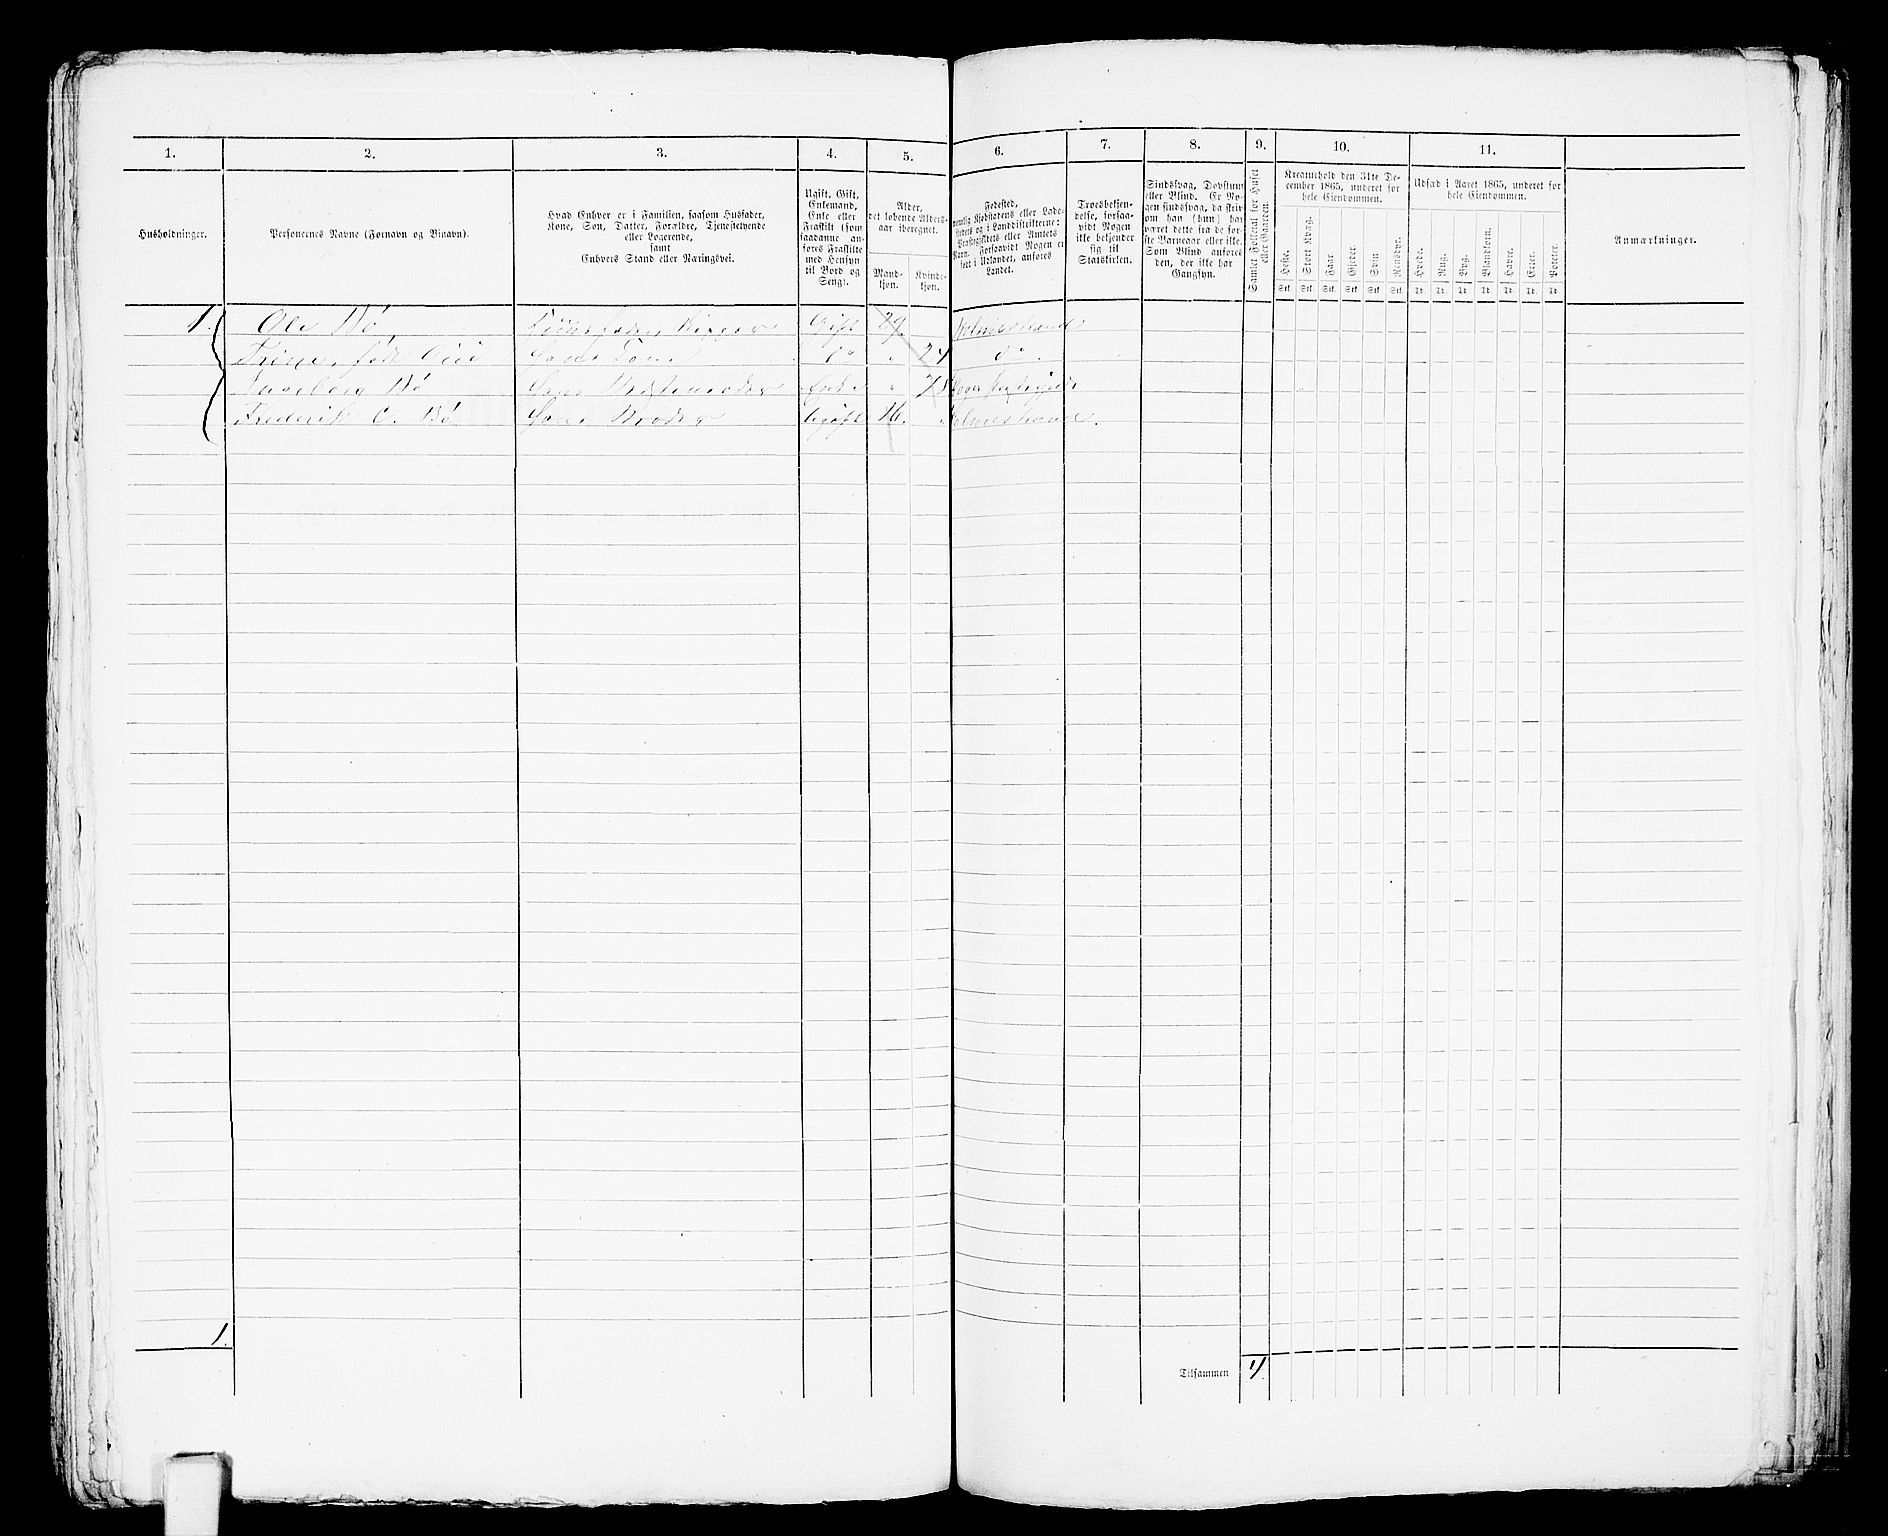 1.
2.
3.
4.
5.
6.
7.
8.
9.
10.
11.
Husholdninger.
Personernes Navne (Fornavn og Binavn).
Hvad Enhver er i Familien, saasom Husfader,
Kone, Søn, Datter, Forældre, Tjenestetyende
eller Logerende,
samt
Enhvers Stand eller Næringsvei.
Ugift, Gift,
Enkemand,
Enke eller
Fraskilt (som
saadanne an-
føres Fraskilte
med Hensyn
til Bord og
Seng).
Alder,
det løbende Alders-
aar iberegnet.
Mand-
kjøn.
Kvinde-
kjøn.
Fødested,
nemlig Kjøbstadens eller Lade-
stedets og i Landdistrikterne:
Præstegjeldets eller Amtets
Navn. Forsaavidt Nogen er
født i Udlandet, anføres
Landet.
Troesbekjen-
delse, forsaa-
vidt Nogen
ikke bekjender
sig til
Statskirken.
Sindssvag, Døvstum
eller Blind. Er No-
gen sindssvag, da skriv
om han (hun) har
været dette fra de før-
ste Barneaar eller ikke.
Som Blind anføres
den, der ikke har
Gangsyn.
Samlet Folketal for Huset
eller Gaarden.
Kreaturhold den 31te De-
cember 1865, underet for
hele Eiendommen.
Heste. Stort Kvæg. Faar. Gjeder. Svin Rensdyr.
Stk. Stk. Stk. Stk. Stk. Stk.
Udsæd i Aaret 1865, underet for
hele Eiendommen.
Hvede. Rug. Byg. Blandkorn. Havre. Erter. Poteter.
Td. Td. Td. Td. Td. Td. Td.
Anmærkninger.
1. Ole Bö Gift 29 Holmestrand
Trine, født do " 24 do.
Ingeborg Bö Hans Enke " 78
Frederik C. Bö Hans Broder Ugift 16. " Holmestrand.
1.
Tilsammen 4